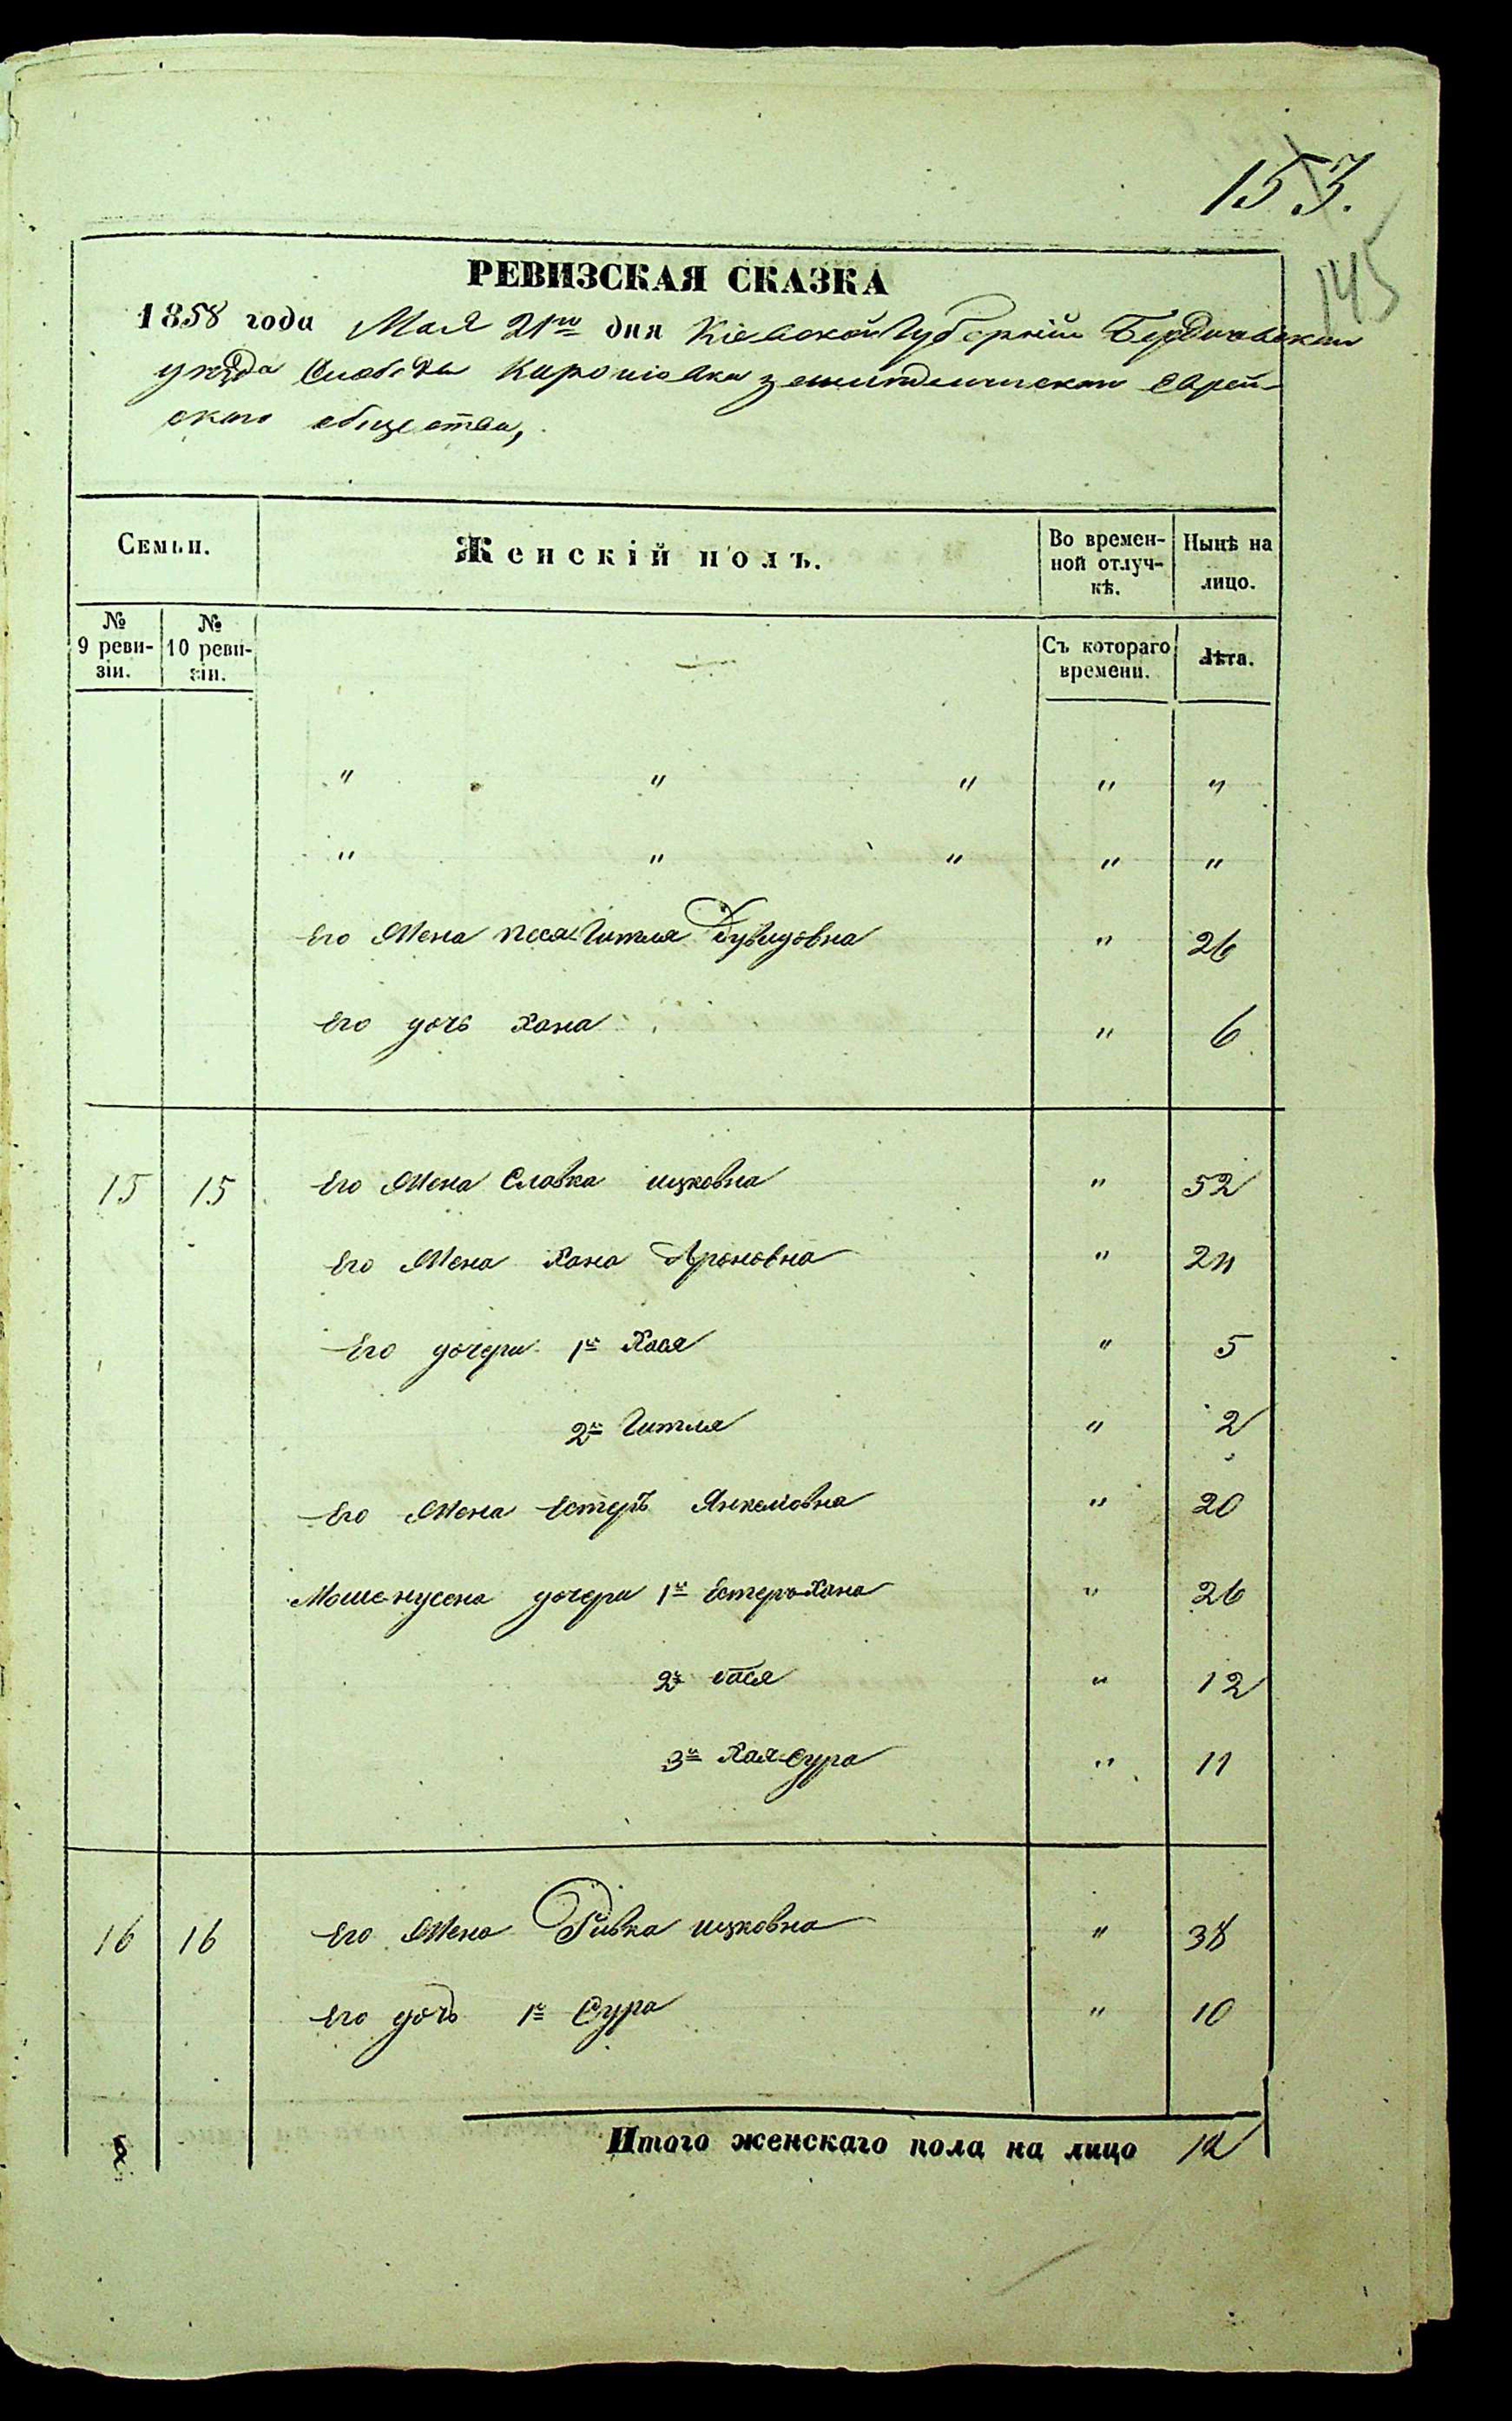 153.
145
РЕВИЗСКАЯ СКАЗКА
1858 года Мая 21го дня Кіевской Губерніи Бердичевскаго
уѣзда Слободы земледѣлческаго еврей-
скаго общества,
Семьи.
Женскій полъ.
Во времен-
ной отлуч-
кѣ.
Нынѣ на
лицо.
№
9 реви-
зіи.
№
10 реви-
зіи.
Съ котораго
времени.
Лѣта.
" " " " "
" " " " "
Его Жена Песя-Гитля Дувидовна " 26
Его дочь Хана " 6
15 15 Его Жена Славка ицковна " 52
Его Жена Хана Ароновна "
Его дочери 1я Хася " 5
2я Гитля " 2
Его Жена Естеръ Янкеловна " 20
Моше-нусена дочери 1я Естеръ-Хана " 26
2я " 12
3я Хая-Сура " 11
16 16 Его Жена Ривка ицковна " 38
Его дочь 1я Сура " 10
Итого женскаго пола на лицо 12